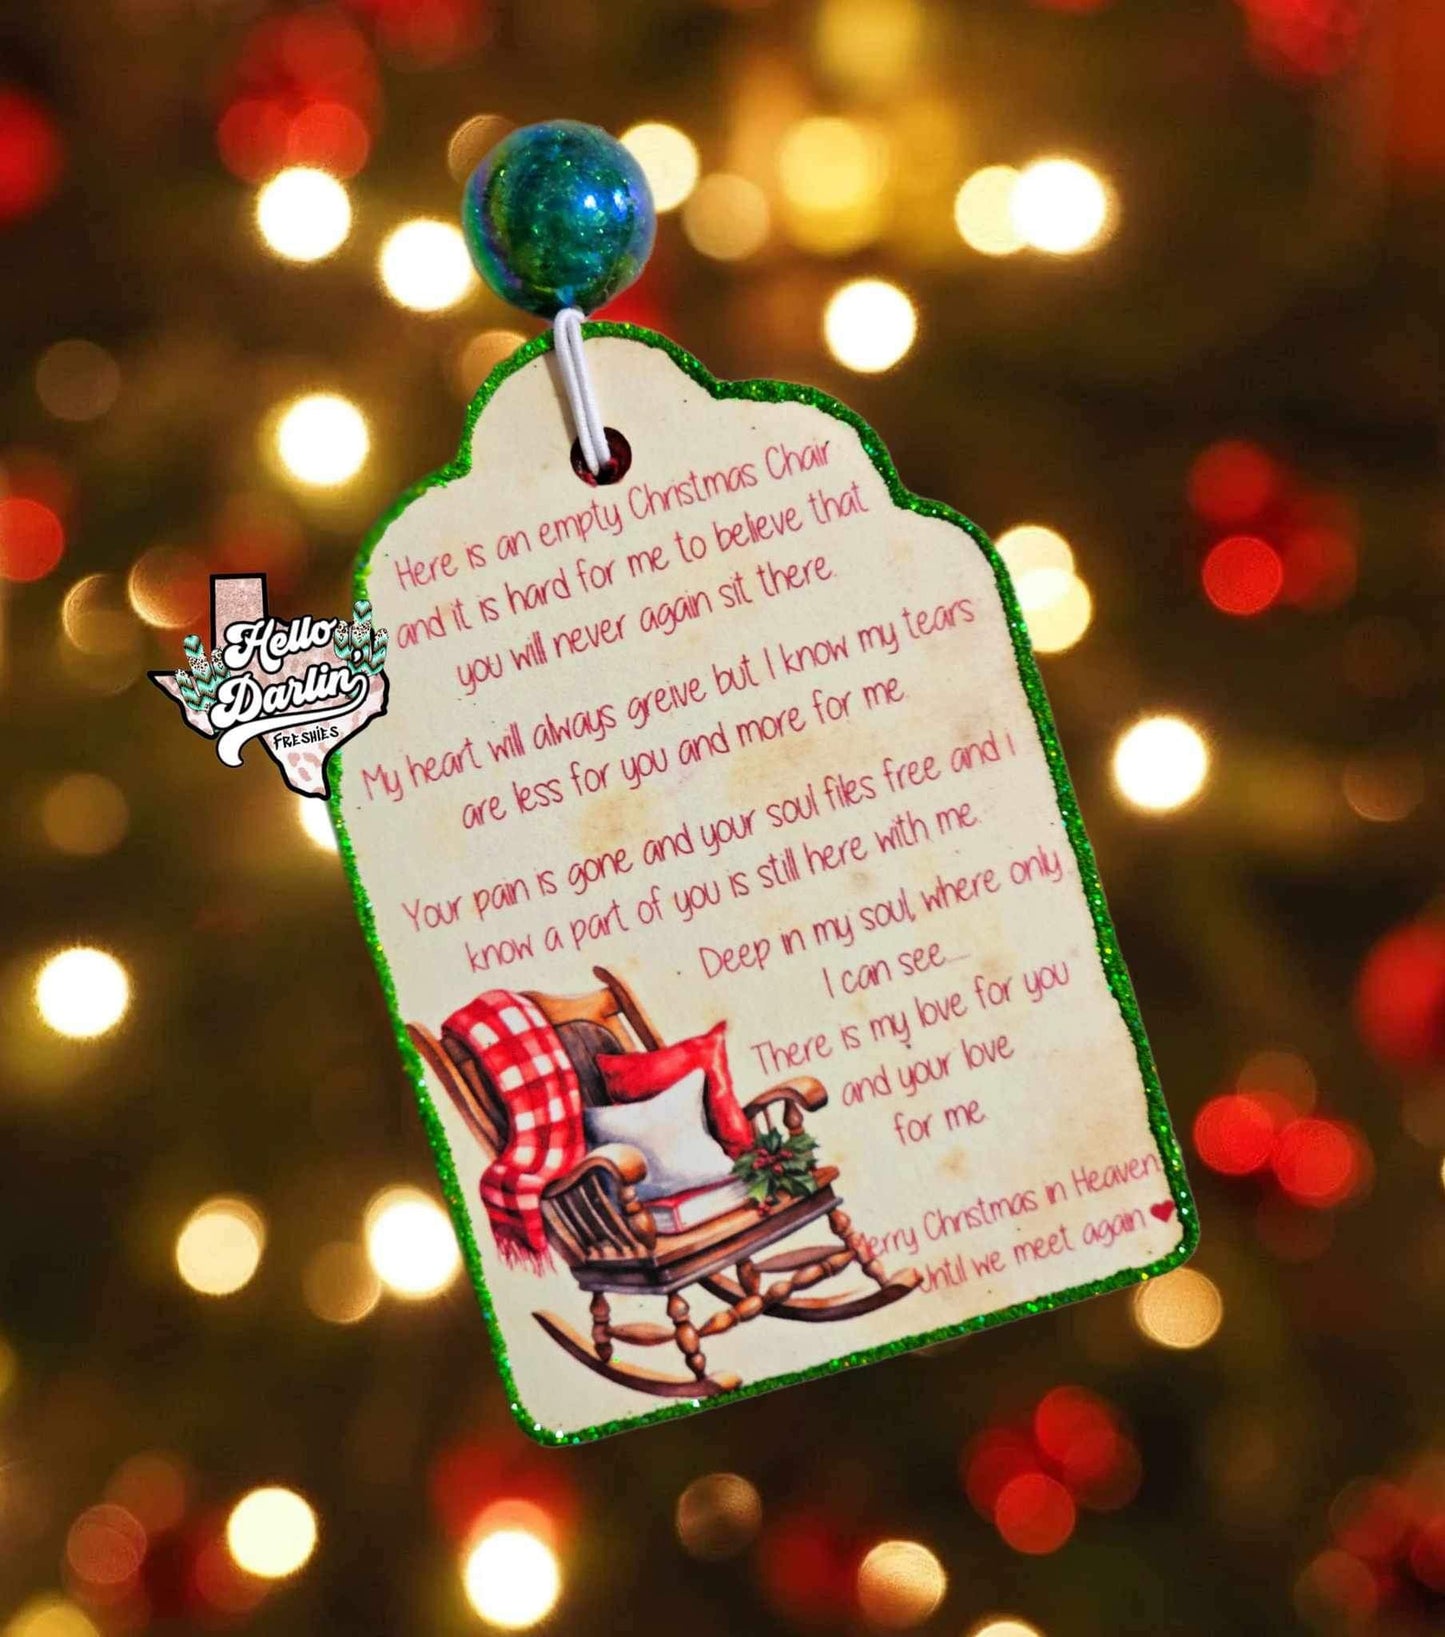 Here is an empty Christmas Chair
and it is hard for me to believe that
you will never again sit there.
My heart will always greive but I know my tears
are less for you and more for me.
Your pain is gone and your soul files free and i
know a part of you is still here with me.
Deep in my soul, where only
I can see.....
There is my love for you
and your love
for me.
Merry Christmas in Heaven,
Until we meet again
Hello
Darlin'
FRESHIES